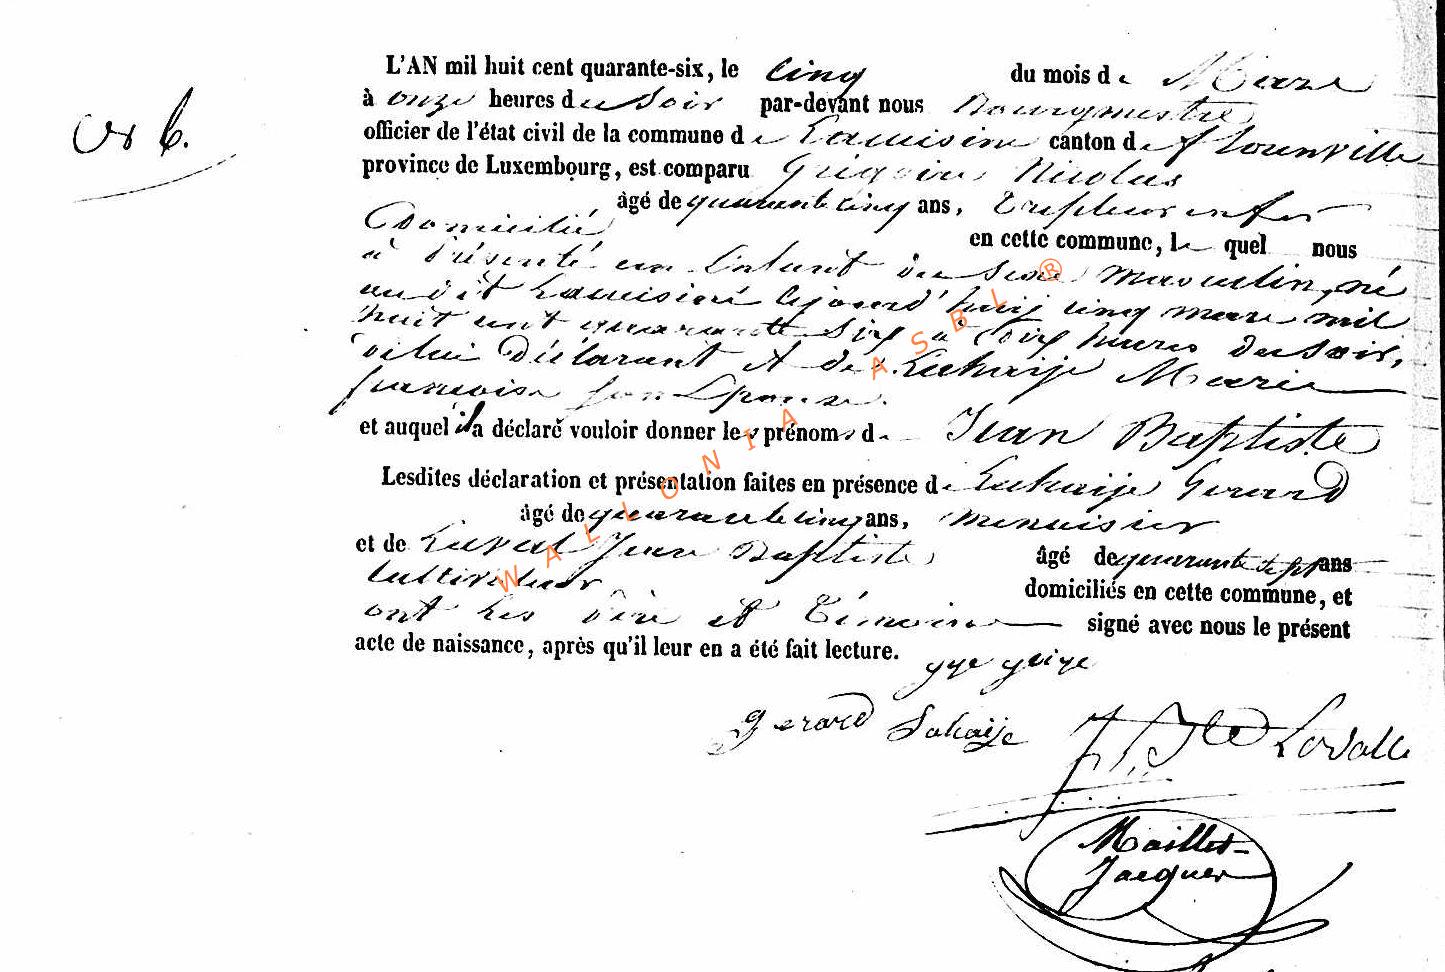 N° 6.
L'AN mil huit cent quarante-six, le cinq du mois de Mars
à onze heures du Soir par-devant nous Bourgmestre
officier de l'état civil de la commune de canton de florenville
province de Luxembourg, est comparu Grégoire Nicolas
âgé de quarante cinq ans,
Domicilié en cette commune, le quel nous
à Présenté un Enfant du Sexe masculin, né
au dit cejourd'huij cinq mars mil
huit cent quarante Six à Dix heures du Soir,
de lui Déclarant et de Lahaije Marie
françoise Son Epouse.
et auquel il a déclaré vouloir donner les prénoms de Jean Baptiste
Lesdites déclaration et présentation faites en présence de Lahaije Gerard
âgé de quarante cinq ans, menuisier
et de Laval Jean Baptiste âgé de quarante sept ans
Cultivateur domiciliés en cette commune, et
ont Les Père et Témoins signé avec nous le présent
acte de naissance, après qu'il leur en a été fait lecture.
gerard Lahaije J. Bte Lavalle
Maillet
Jacques
WALLONIA ASBL ®